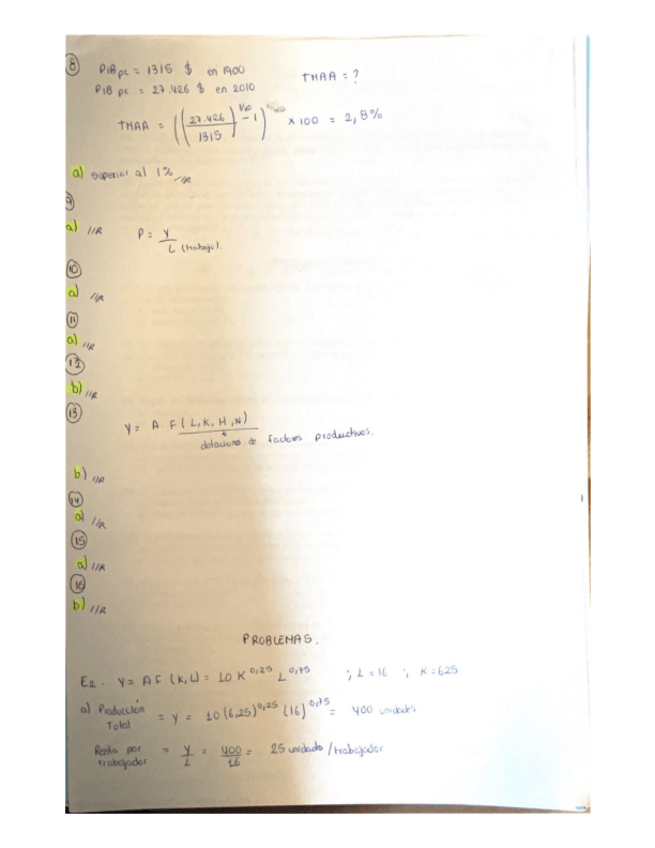 8 PIB pc = 1315 $ en 1900 TMAA = ?
PIB pc = 27.426 $ en 2010
TMAA = ((27.426 / 1315)^1/110 - 1) × 100 = 2,8%
a) superior al 1% //R
9
a) //R P = Y / L (trabajo).
10
a) //R
11
a) //R
12
b) //R
13
Y = A · F (L, K, H, N)
dotaciones de factores productivos.
b) //R
14
a) //R
15
a) //R
16
b) //R
PROBLEMAS.
E2. Y = A F (K, L) = 10 K^0,25 L^0,75 ; L = 16 ; K = 625
a) Producción Total = Y = 10 (6,25)^0,25 (16)^0,75 = 400 unidades
Renta por trabajador = Y / L = 400 / 16 = 25 unidades / trabajador